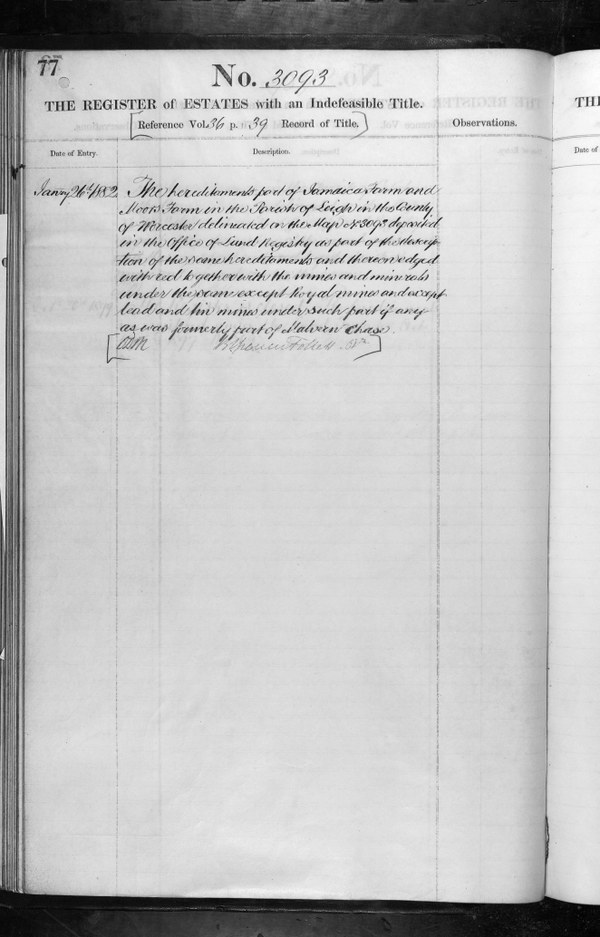 77
No. 3093
THE REGISTER of ESTATES with an Indefeasible Title.
[Reference Vol. 36 p. 39 Record of Title.]
Observations.
Date of Entry.
Description.
The hereditaments part of Jamaica Farm and
Moors Farm in the Parish of Leigh in the County
of Worcester delineated on the Map No 3093 deposited
in the Office of Land Registry as part of the descrip-
tion of the same hereditaments and thereon edged
with red together with the mines and minerals
under the same except Royal mines and except
lead and tin mines under such part if any
as was formerly part of Malvern Chase.
Brent Spencer Follett
THE
Date of